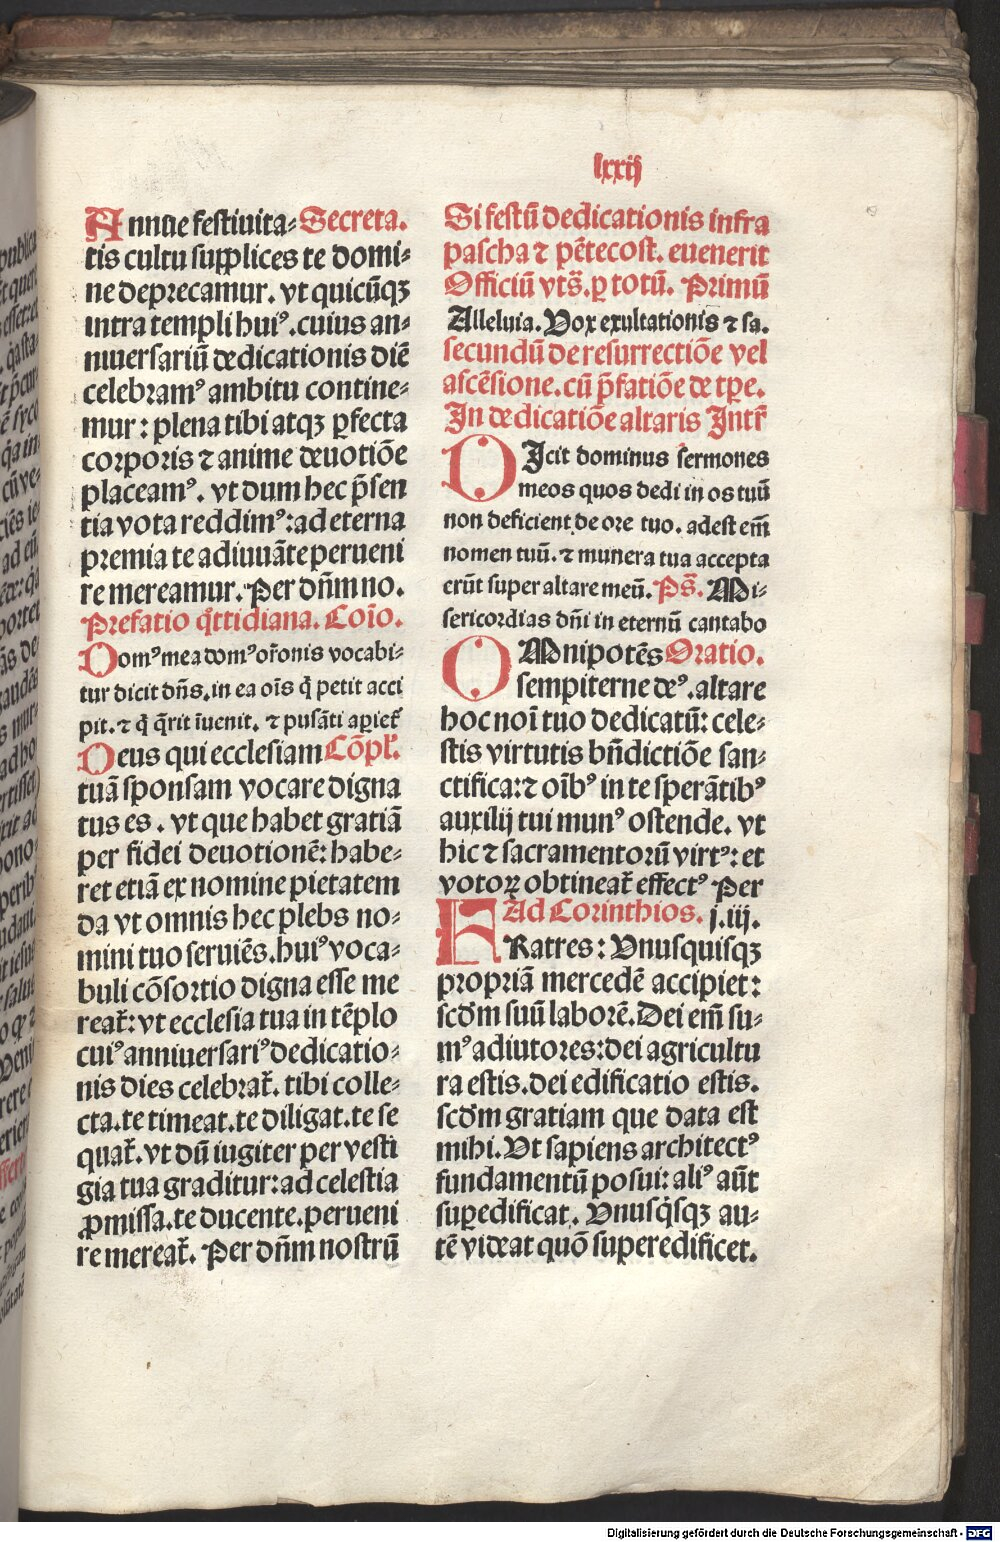 lxxij
Annue festiuita⸗ Secreta.
tis cultu supplices te domi⸗
ne deprecamur. vt quicūqꝫ
intra templi huiꝰ. cuius an⸗
niuersariū dedicationis diē
celebramꝰ ambitu contine⸗
mur: plena tibi atqꝫ ꝑfecta
corporis ⁊ anime deuotiōe
placeamꝰ. vt dum hec p̄sen
tia vota reddimꝰ: ad eterna
premia te adiuuāte perueni
re mereamur. Per dn̄m no.
Prefatio q̄ttidiana. Cōio.
Domꝰ mea domꝰ or̄onis vocabi⸗
tur dicit dn̄s. in ea oīs q̄ petit acci
pit. ⁊ q̄ q̄rit īuenit. ⁊ pulsāti apiet̄
Deus qui ecclesiam Cōpl̄.
tuā sponsam vocare digna
tus es. vt que habet gratiā
per fidei deuotionē: habe⸗
ret etiā ex nomine pietatem
da vt omnis hec plebs no⸗
mini tuo seruiēs. huiꝰ voca⸗
buli cōsortio digna esse me
reat̄: vt ecclesia tua in tēplo
cuiꝰ anniuersariꝰ dedicatio⸗
nis dies celebrat̄. tibi colle⸗
cta. te timeat. te diligat. te se
quat̄. vt dū iugiter per vesti
gia tua graditur: ad celestia
ꝓmissa. te ducente. perueni
re mereat̄. Per dn̄m nostrū
Si festū dedicationis infra
pascha ⁊ pētecost. euenerit
Officiū vts̄. ꝑ totū. Primū
Alleluia. Vox exultationis ⁊ sa.
secundū de resurrectiōe vel
ascēsione. cū p̄fatiōe de tp̄e.
In dedicatiōe altaris Intr̄
DIcit dominus sermones
meos quos dedi in os tuū
non deficient de ore tuo. adest em̄
nomen tuū. ⁊ munera tua accepta
erūt super altare meū. Ps̄. Mi⸗
sericordias dn̄i in eternū cantabo
OMnipotēs Oratio.
sempiterne deꝰ. altare
hoc noī tuo dedicatū: cele⸗
stis virtutis bn̄dictiōe san⸗
ctifica: ⁊ oībꝰ in te sperātibꝰ
auxilij tui munꝰ ostende. vt
hic ⁊ sacramentorū virtꝰ: et
votoꝝ obtineat̄ effectꝰ Per
Ad Corinthios. j. iij.
FRatres: Vnusquisqꝫ
propriā mercedē accipiet:
scd̄m suū laborē. Dei em̄ su⸗
mꝰ adiutores: dei agricultu
ra estis. dei edificatio estis.
scd̄m gratiam que data est
mihi. Vt sapiens architectꝰ
fundamentū posui: aliꝰ aūt
suꝑedificat. Vnusq̄sqꝫ au⸗
tē videat quō superedificet.
Digitalisierung gefördert durch die Deutsche Forschungsgemeinschaft - DFG